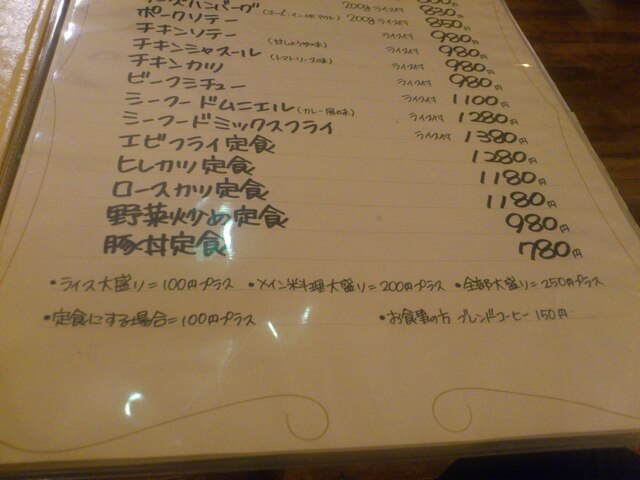 ハンバーグ 200gライス付 850円
ポークソテー ライス付 980円
チキンソテー (甘しょうゆ味) 980円
チキンシャスール (トマトソース味) ライス付 980円
チキンカツ ライス付 980円
ビーフシチュー ライス付 1100円
シーフードムニエル (カレー風味) ライス付 1280円
シーフードミックスフライ ライス付 1380円
エビフライ定食 1280円
ヒレカツ定食 1180円
ロースカツ定食 1180円
野菜炒め定食 980円
豚丼定食 780円
・ライス大盛り=100円プラス ・メイン料理大盛り=200円プラス ・全部大盛り=250円プラス
・定食にする場合=100円プラス ・お食事の方 ブレンドコーヒー 150円